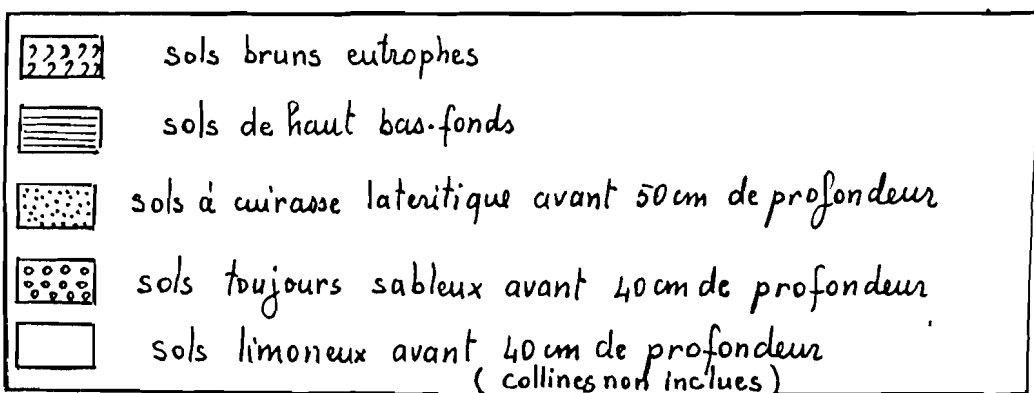 sols bruns eutrophes
sols de haut bas-fonds
sols à cuirasse lateritique avant 50 cm de profondeur
sols toujours sableux avant 40 cm de profondeur
sols limoneux avant 40 cm de profondeur
(collines non inclues)